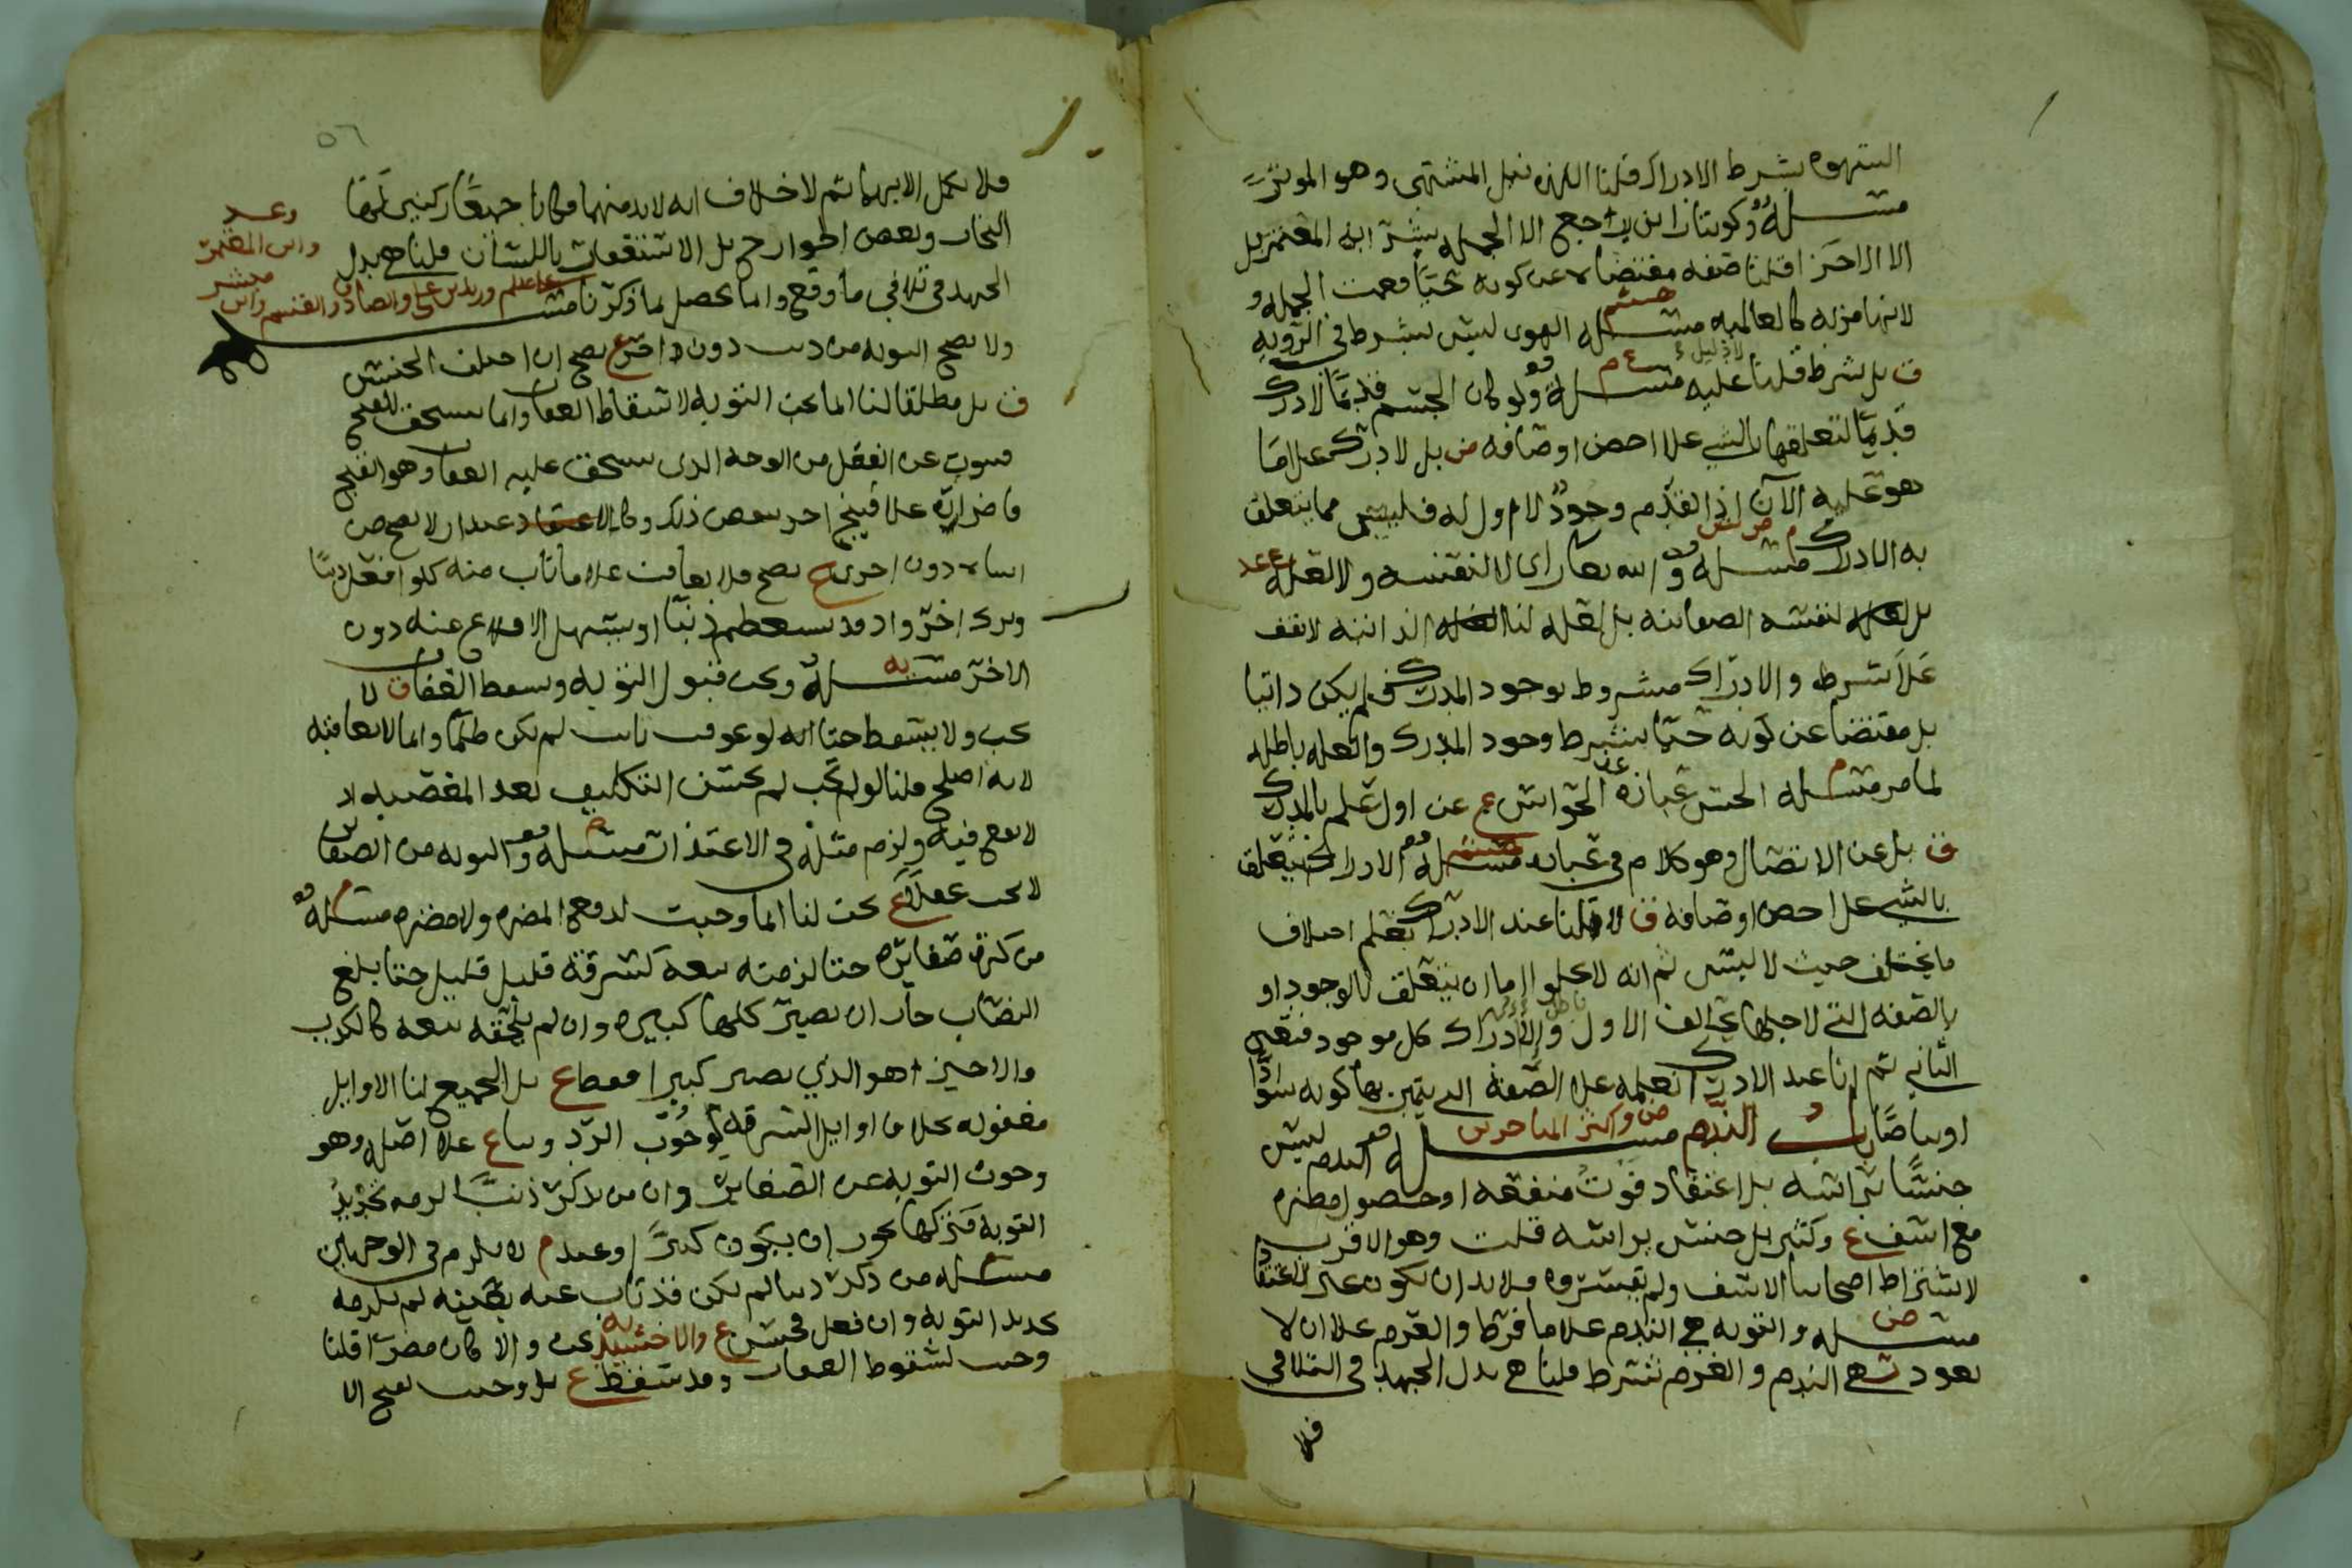 الشهوه بشرط الادراك قلنا اللذه نيل المشتهى وهو الموثر
مسلة وكوننا راجع الا الجمله بشر ابن المعتمر بل
الا الاجزا قلنا صفه مقتضاه عن كونه حيا فعمت الجمله و
لانها مزيه كالعالميه مسله الهوى ليس بشرط في الرويه
ق بل شرط قلنا لا دليل عليه مسله ولو كان الجسم قديما لادرك
قديما لتعلقها بالشي علا اخص اوصافه ض بل لادرك علا ما
هو عليه الآن اذ القدم وجود لا اول له فليس مما يتعلق
به الادراك مسلة والله تعالى راى لا لنفسه ولا لعله
بل لنفسه الصفاتيه بل لعله لنا الذاتيه لا تقف
علا شرط والادراك مشروط بوجود المدرك فلم يكن ذاتيا
بل مقتضا عن كونه حيا بشرط وجود المدرك والعله باطله
لما مر مسله الحس عباره عن الحواس ع عن اول علم بالمدرك
ق بل عن الاتصال وهو كلام في عباره مسلة الادراك يتعلق
بالشي علا اخص اوصافه ق لا قلنا عند الادراك نعلم اختلاف
ما يختلف حيث لا لبس ثم انه لا يخلوا اما ان يتعلق بالوجود او
بالصفه التي لاجلها يخالف الاول باطل والا ادراك كل موجود فتعين
الثاني ثم انا عند الادراك نعلمه علا الصفه التي يتميز بها كونه سوادا
او بياضا باب الندم ض واكثر المتاخرين مسله الندم ليس
جنسا براسه بل اعتقاد فوت منفعه او حصول مضره
مع اسف ع وكثير بل جنس براسه قلت وهو الاقرب
لاشتراط اصحابنا الاسف ولم يفسروه فلا بد ان يكون غير الاعتقاد
ض مسله والتوبه هي الندم علا ما فرط والعزم علا ان لا
يعود هي الندم والعزم شرط قلنا هي بذل الجهد في التلافي
فلا
٥٦
فلا يكمل الا بهما ثم لا خلاف انه لا بد منهما فكانا جميعا ركنين لها
النجار وبعض الخوارج بل الاستغفار باللسان قلنا هي بذل
وعد
وابن المعتمر
مبشر
الجهد في تلافي ما وقع وانما يحصل بما ذكرنا مسله
علي علم وزيد بن علي والصادق والقسم وابن
ولا تصح التوبه من ذنب دون اخر ع تصح ان اختلف الجنس
ق بل مطلقا لنا انما تجب التوبه لاسقاط العقاب وانما يستحق للقبح
فيتوب عن الفعل من الوجه الذي يستحق عليه العقاب وهو القبح
فاضراره علا قبيح اخر ينقض ذلك وكالاعتذار لا يصح من
اساه دون اخرى ع تصح فلا يعاقب علا ما تاب منه كلو افعل ذنبا
وترك اخر واذ قد يستعظم ذنبا او يسهل الاقلاع عنه دون
الاخر مسلة ويجب قبول التوبه ويسقط العقاب ق لا
يجب ولا يسقط حتا انه لو عوقب تايب لم يكن ظلما وانما لا يعاقبه
لانه اصلح قلنا لو لم يجب لم يحسن التكليف بعد المعصيه اذ
لا نفع فيه ولزم مثله في الاعتذار مسله والتوبه من الصغاير
لا تجب عقلا ع تجب لنا انما وجبت لدفع المضره ولا مضره مسله
من كثرت صغايره حتا لزمته تبعه كسرقة قليل قليل حتا بلغ
النصاب جاز ان تصير كلها كبيره وان لم يلحقه تبعه كالكذب
والاخير هو الذي يصير كبيرا فقط ع بل الجميع لنا الاوايل
مغفوره بخلاف اوايل السرقه لوجوب الرد وبناع علا اصله وهو
وجوب التوبه عن الصغاير وان من يذكر ذنبا لزمه تجديد
التوبه فتركها يجوز ان يكون كبيرا وعندم لا يلزم في الوجهين
مسله من ذكر ذنبا لم يكن قد تاب عنه بعينه لم يلزمه
تجديد التوبه وان فعل فحسن ع والاخشيد يجب والا كان مصرا قلنا
وجب لسقوط العقاب وقد سقط ع بل وجب لقبح الا